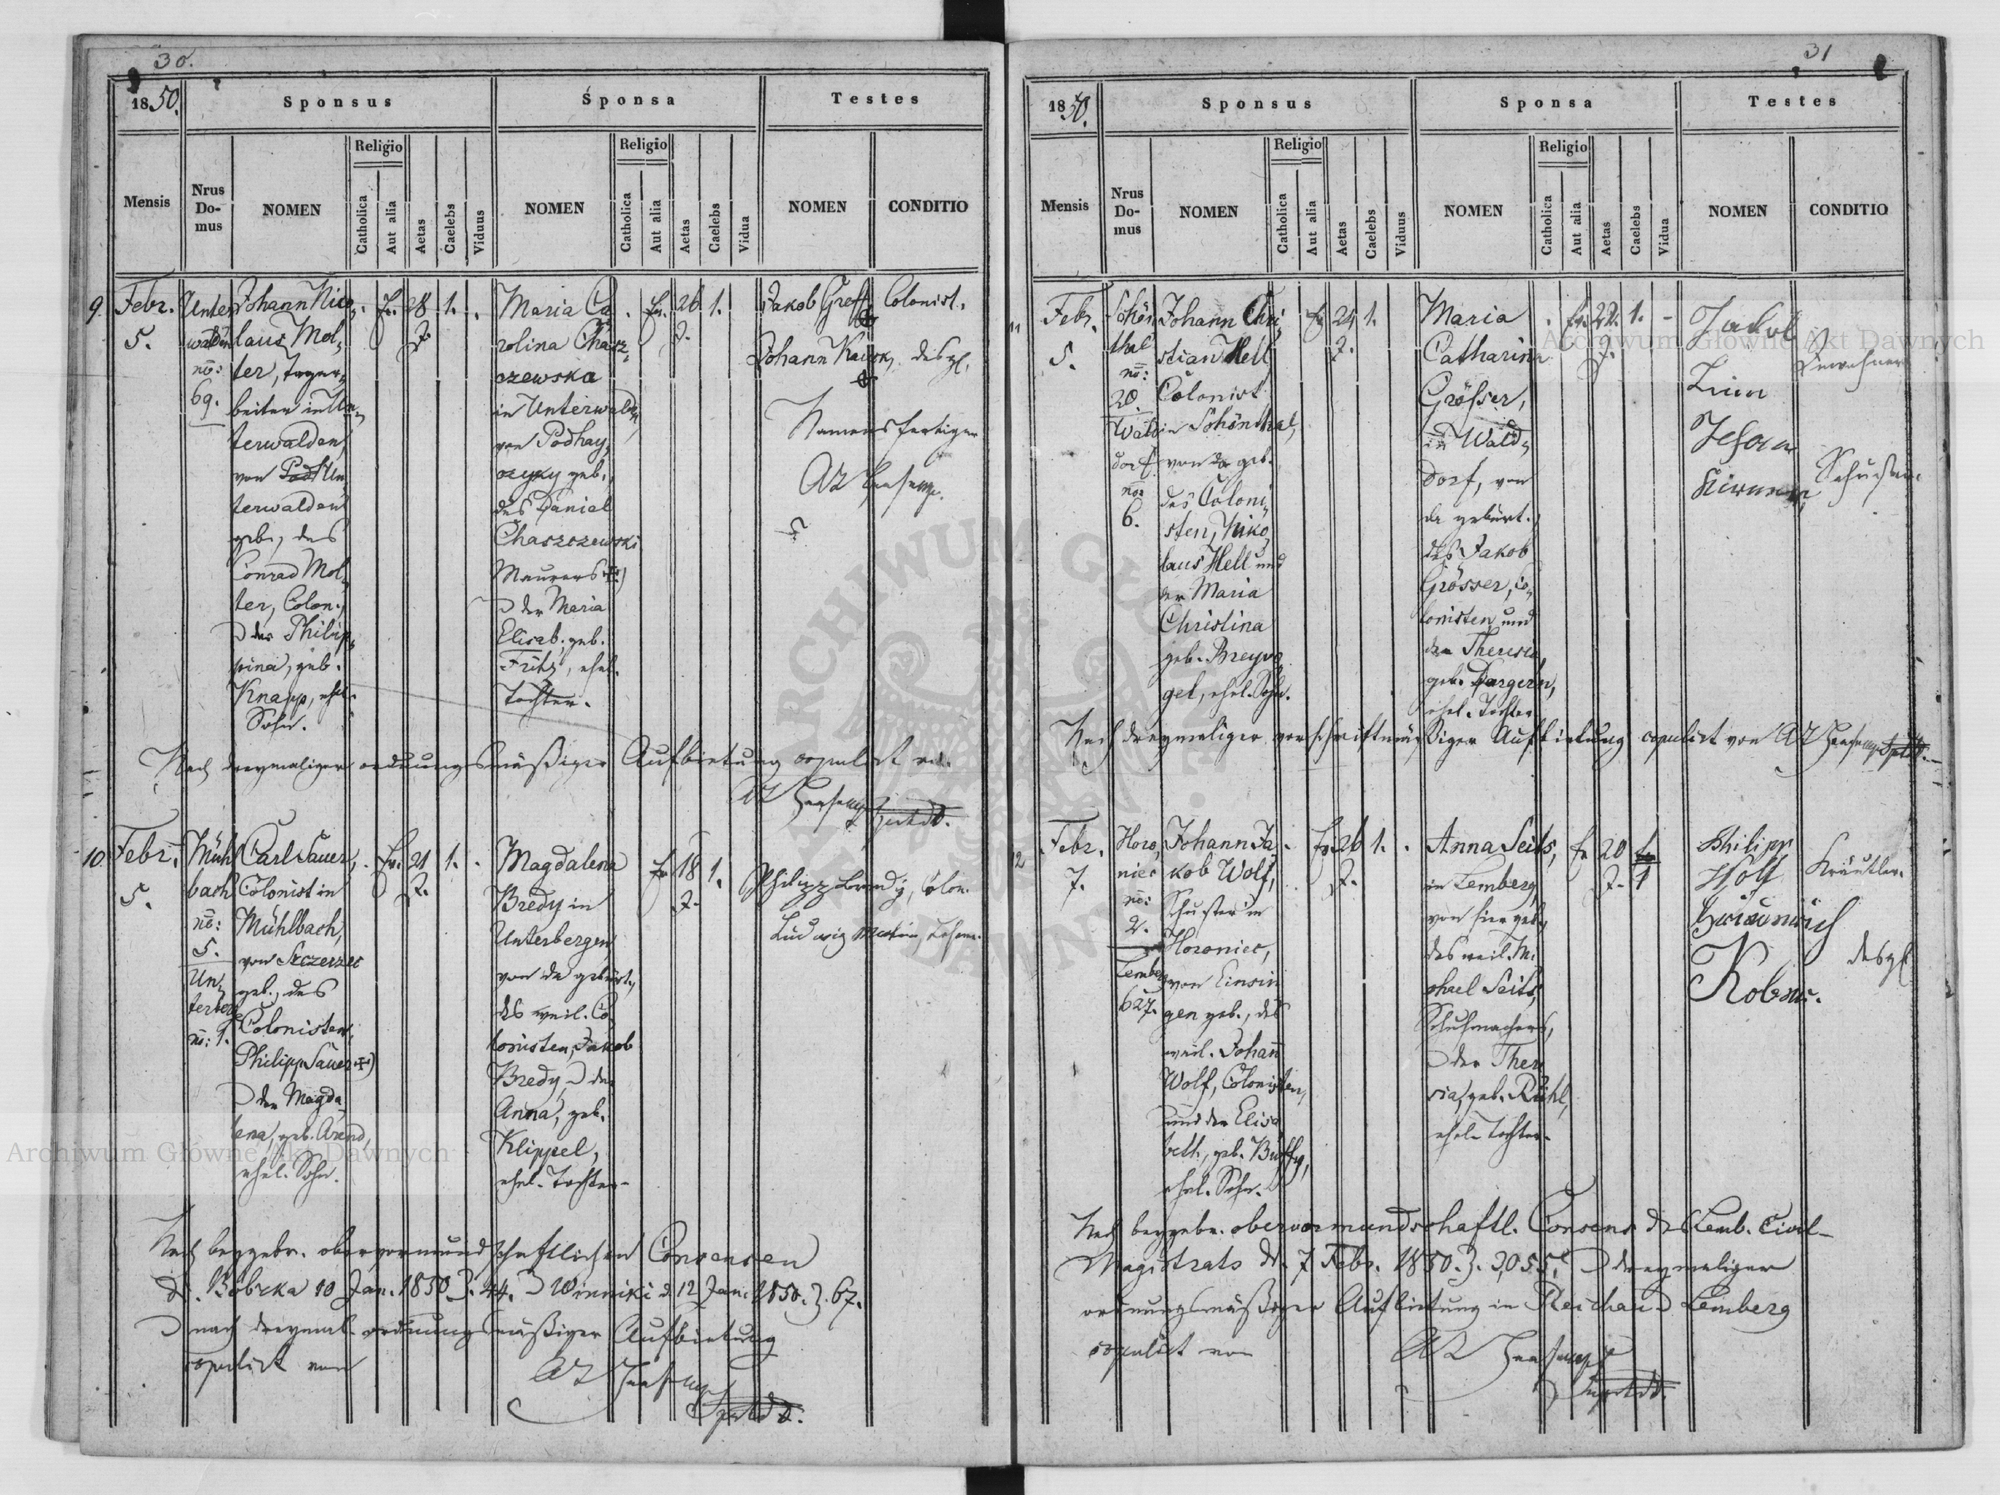 30.
1850.
Sponsus
Sponsa
Testes
Mensis
Nrus
Do-
mus
NOMEN
Religio
Catholica
Aut alia
Aetas
Caelebs
Viduus
NOMEN
Religio
Catholica
Aut alia
Aetas
Caelebs
Vidua
NOMEN
CONDITIO
9.
Febr.
5.
Unter
walden
no:
69.
Johann Nico
laus Mol,
ter,
beiter in Un,
terwalden,
von Un
terwalden
geb., des
Conrad Mol,
ter, Colon.
der Philip,
pina, geb.
Knapp, ehel.
Sohn.
28
J.
1.
Maria Ca
rolina Chasz,
czewska
in Unterwalden,
von Podhay,
czyky geb.,
des Daniel
Chaszczewski
Maurers
der Maria
Elisab. geb.
Fritz, ehel.
Tochter.
26
J.
1.
Jakob Greff, Colonist.
Johann
Namensfertiger
Nach dreymaliger ordnungsmäßiger Aufbietung copulirt von
10.
Febr.
5.
Mühl
bach
no:
5.
Un,
terberg
no: 1.
Carl Sauer,
Colonist in
Mühlbach,
von Szczerzec
geb., des
Colonisten,
Philipp Sauer
der Magda
lena, geb. Arend,
ehel. Sohn.
21
J.
1.
Magdalena
Bredy in
Unterbergen,
von da gebürt.,
des weil. Co
lonisten, Jakob
Bredy, der
Anna, geb.
Klippel,
ehel. Tochter.
18
J.
1.
Philipp Bredy, Colon.
Ludwig
Nach beygebr. obervormundschaftlichen Consensen
d. Bóbrka 10 Jan. 1850 Z. 44. Winniki d. 12 Jan. 1850. Z. 67.
nach dreymal. ordnungsmäßiger Aufbietung
copulirt von
31
1850.
Sponsus
Sponsa
Testes
Mensis
Nrus
Do-
mus
NOMEN
Religio
Catholica
Aut alia
Aetas
Caelebs
Viduus
NOMEN
Religio
Catholica
Aut alia
Aetas
Caelebs
Vidua
NOMEN
CONDITIO
11
Febr.
5.
Schön
thal
no:
20.
Wald
dorf
no:
6.
Johann Chri,
stian Hell
Colonist
in Schönthal,
von da geb.
des Coloni,
sten, Niko,
laus Hell und
der Maria
Christina
geb. Breyvo,
gel, ehel. Sohn.
24
J.
1.
Maria
Catharina
Grösser,
in Wald,
dorf, von
da gebürt.
des Jakob
Grösser, Co,
lonisten und
der Theresia
geb. Dargern,
ehel. Tochter
22
J.
1.
Jakob
Johann
Schuster.
Nach dreymaliger vorschriftmäßiger Aufbietung copulirt von
12
Febr.
7.
Horo,
niec
no:
2.
Lemberg
627.
Johann Ja
kob Wolf,
Schuster in
Horoniec,
von Einsin
gen geb., des
weil. Johann
Wolf, Colonisten,
und der Elisa
beth, geb.
ehel. Sohn.
26
J.
1.
Anna Seits,
in Lemberg,
von hier geb.,
des weil. Mi
chael Seits,
Schuhmachers,
der There
sia, geb. Rühl,
ehel. Tochter.
20
J.
1
Philipp
Wolf
Kräutler.
desgl.
Nach beygebr. obervormundschaftl. Consens des Lemb. Civil-
Magistrats d. 7 Febr. 1850. Z. 3,055, dreymaliger
ordnungsmäßiger Aufbietung in Reichau Lemberg
copulirt von
ARCHIWUM GŁÓWNE AKT DAWNYCH
Archiwum Główne Akt Dawnych
Archiwum Główne Akt Dawnych